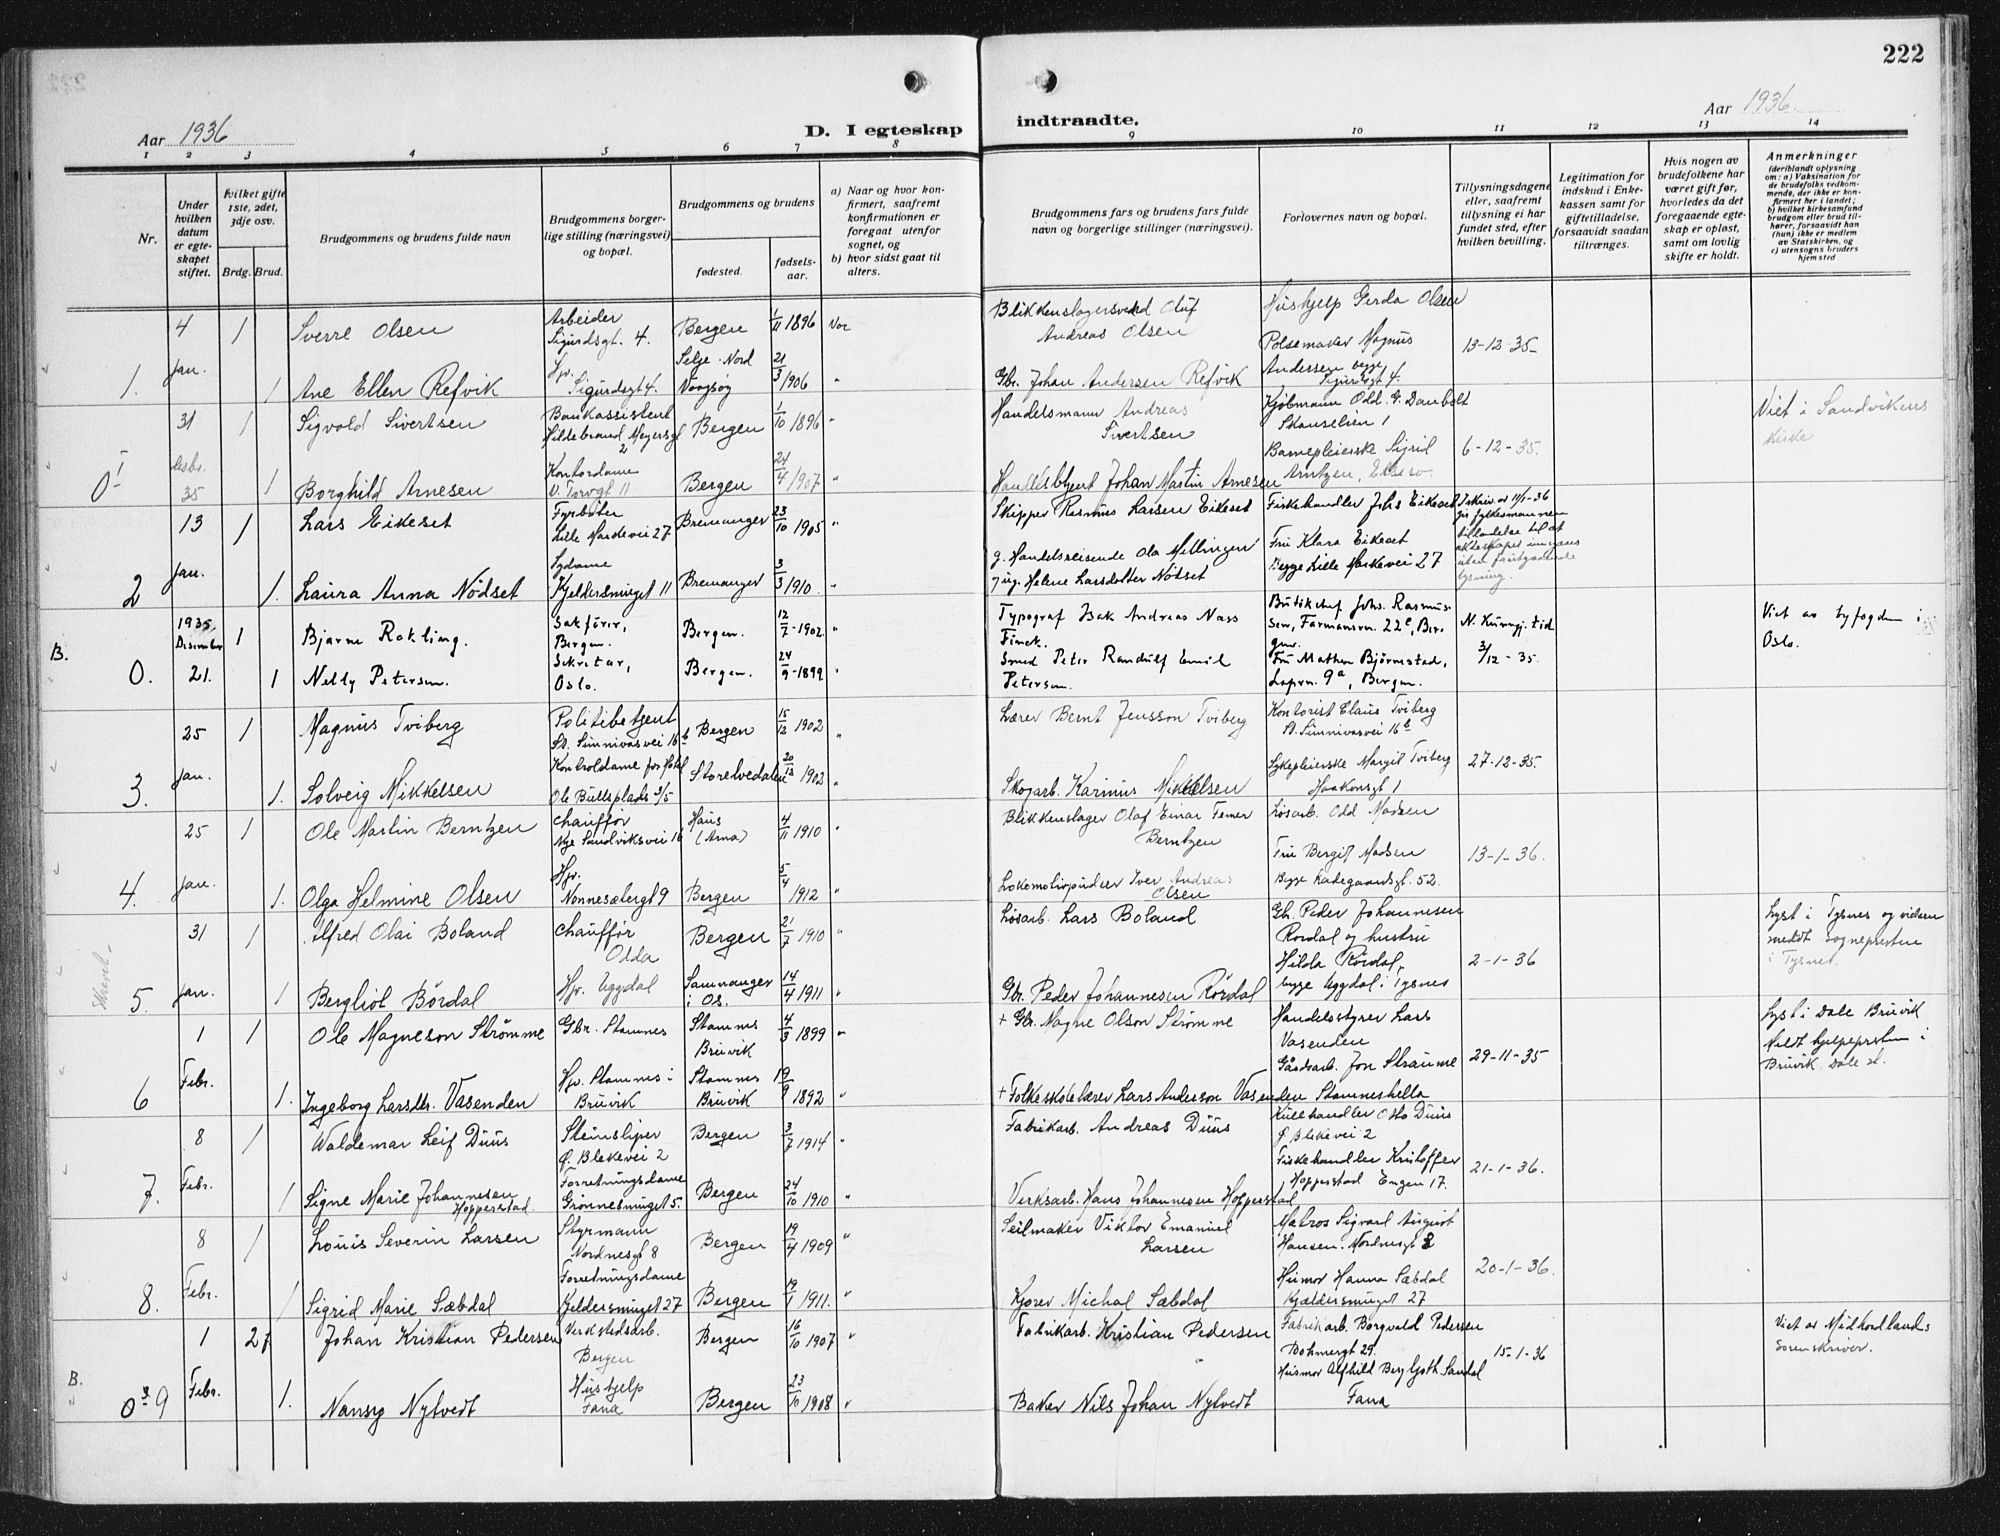 222
Aar 1936
D. I egteskap
indtraadte.
Aar 1936
1 2 3 4 5 6 7 8 9 10 11 12 13 14
Nr.
Under hvilken datum er egteskapet stiftet.
hvilket gifte 1ste, 2det, 3dje osv.
Brdg. Brud.
Brudgommens og brudens fulde navn
Brudgommens borgerlige stilling (næringsvei) og bopæl.
Brudgommens og brudens
fødested.
fødselsaar.
a) Naar og hvor konfirmert, saafremt konfirmationen er foregaat utenfor sognet, og
b) hvor sidst gaat til alters.
Brudgommens fars og brudens fars fulde navn og borgerlige stillinger (næringsvei).
Forlovernes navn og bopæl.
Tillysningsdagene eller, saafremt tillysning ei har fundet sted, efter hvilken bevilling.
Legitimation for indskud i Enkekassen samt for giftetilladelse, forsaavidt saadan tiltrænges.
Hvis nogen av brudefolkene har været gift før, hvorledes da det foregaaende egteskap er opløst, samt om lovlig skifte er holdt.
Anmerkninger
(deriblandt oplysning om: a) Vaksination for de brudefolks vedkommende, der ikke er konfirmert her i landet; b) hvilket kirkesamfund brudgom eller brud tilhører, forsaavidt han (hun) ikke er medlem av Statskirken, og c) utensogns bruders hjemsted
1. 4 Jan. 1 Sverre Olsen Arbeider Sigurdsgt. 4. Bergen 1/11 1896 Nor Blikkenslagersvend Oluf Andreas Olsen Hushjelp Gerda Olsen
Pølsemaker Magnus Andersen begge Sigurdsgt 4. 13-12-35
1 Ane Ellen Refvik Hjv. Sigurdsgt 4. Selje Nord Vaagsøy 21/3 1906 " Gbr. Johan Andersen Refvik
0 31 desbr. 35 1 Sigvald Sivertsen Bankassistent Hildebrand Meyersgt 2 Bergen 1/10 1896 " Handelsmann Andreas Sivertsen Kjøbmann Odd. G. Danbolt Skanselien 1 Viet i Sandvikens Kirke
1 Borghild Arnesen Kontordame V. Torvgt 11 Bergen 24/4 1907 " Johan Martin Arnesen Barnepleierske Sigrid Arntzen 6-12-35.
2 13 Jan. 1 Lars Eikeset Fyrbøter Lille Markevei 27 Bremanger 23/10 1905 " Skipper Rasmus Larsen Eikeset Fiskehandler Johs Eikeset
1. Laura Anna Nødset Sydame Kjeldersmuget 11 Bremanger 3/3 1910 " g. Handelsreisende Ola Mellingen
ug. Helene Larsdotter Nødset Fru Klara Eikeset Begge Lille Markevei 27
B. 0. 1935 Desember 21. 1 Bjarne Rokling. Sakfører, Bergen. Bergen. 12/7-1902. " Typograf Isak Andreas Nass Finck. Butikchef Johs. Rasmussen, Formannsv. 22c, Bergen. N. Kunngj. tid 3/12-35. Viet av byfogden i Oslo.
1 Nelly Petersen. Sekretær, Oslo. Bergen. 24/9-1899 " Smed Peter Randulf Emil Petersen. Fru Mathea Bjørnstad, 9a, Bergen.
3. 25 Jan. 1 Magnus Tviberg Politibetjent St. Sunnivasvei 16b Bergen 15/12 1902 " Lærer Bernt Jensson Tviberg Kontorist Claus Tviberg St. Sunnivasvei 16b
1. Solveig Mikkelsen Kontroldame for Hotel Ole Bullsplads 3/5 Storelvedalen 20/12 1902 " Skogarb. Karinus Mikkelsen Sykepleierske Margit Tviberg Haakonsgt 1 27-12-35.
4. 25 Jan. 1 Ole Martin Berntzen Chauffør Nye Sandviksvei 16 Haus (Arna) 4/11 1910 " Blikkenslager Olaf Einar Femer Berntzen Løsarb. Odd Madsen
1. Olga Helmine Olsen Hjv. Nonnesætergt 9 Bergen 5/4 1912 " Lokomotivpudser Iver Andreas Olsen Fru Bergit Madsen Begge Ladegaardsgt. 52. 13-1-36.
5. 31 Jan. 1 Alfred Olai Boland Chauffør Odda Bergen 21/7 1910 " Løsarb. Lars Boland Gbr. Peder Johannesen Rørdal og hustru Hilda Rørdal, begge Uggdal i Tysnes 2-1-36 Lyst i Tysnes og vielsen meldt sognepresten i Tysnes.
1 Bergliot Børdal Hjv. Uggdal Samnanger i Os. 14/4 1911 " Gbr. Peder Johannesen Rørdal
6 1 Febr. 1 Ole Magneson Strømme Gbr. Stamnes Stamnes Bruvik 4/3 1899 " + Gbr. Magne Olson Strømme Handelsstyrer Lars Vasenden Lyst i Dale Bruvik Meldt hjelpepresten i Bruvik, Dale st.
1. Ingeborg Larsdtr. Vasenden Hjv. Stamnes i Bruvik Stamnes Bruvik 19/9 1892 " + Folkeskolelærer Lars Anderson Vasenden Gårdsarb. Jon Straume Stamneshella 29-11-35
7. 8 Febr. 1 Waldemar Leif Duus Stensliper Ø. Blekevei 2 Bergen 3/7 1914 " Fabrikarb. Andreas Duus Kullhandler Otto Duus Ø. Blekevei 2
1 Signe Marie Johannesen Hopperstad. Forretningsdame Grønnesmuget 5. Bergen 24/10 1910 " Verksarb. Hans Johannesen Hopperstad Fiskehandler Kristoffer Hopperstad Engen 17. 21-1-36.
8. 8 Febr. 1 Louis Severin Larsen Styrmann Nordnesgt 8 Bergen 19/4 1909 " Seilmaker Viktor Emanuel Larsen Matros Sigvard August Hansen. Nordnesgt 8
1 Sigrid Marie Sæbdal Forretningsdame Kjeldersmuget 27 Bergen 19/1 1911. " Kjører Michal Sæbdal Husmor Hanna Sæbdal Kjældersmuget 27 20-1-36.
B. 0 9 1 Febr. 2 Johan Kristian Pedersen Verkstedsarb. Bergen Bergen 16/10 1907 " Fabrikarb. Kristian Pedersen Fabrikarb. Borgvald Pedersen Bøhmergt 29. 15-1-36 Viet av Midhordlands Sorenskriver.
1. Nansy Nytvedt Hushjelp Fana Bergen 23/10 1908 " Baker Nils Johan Nytvedt Husmor Alfhild Sandal Fana